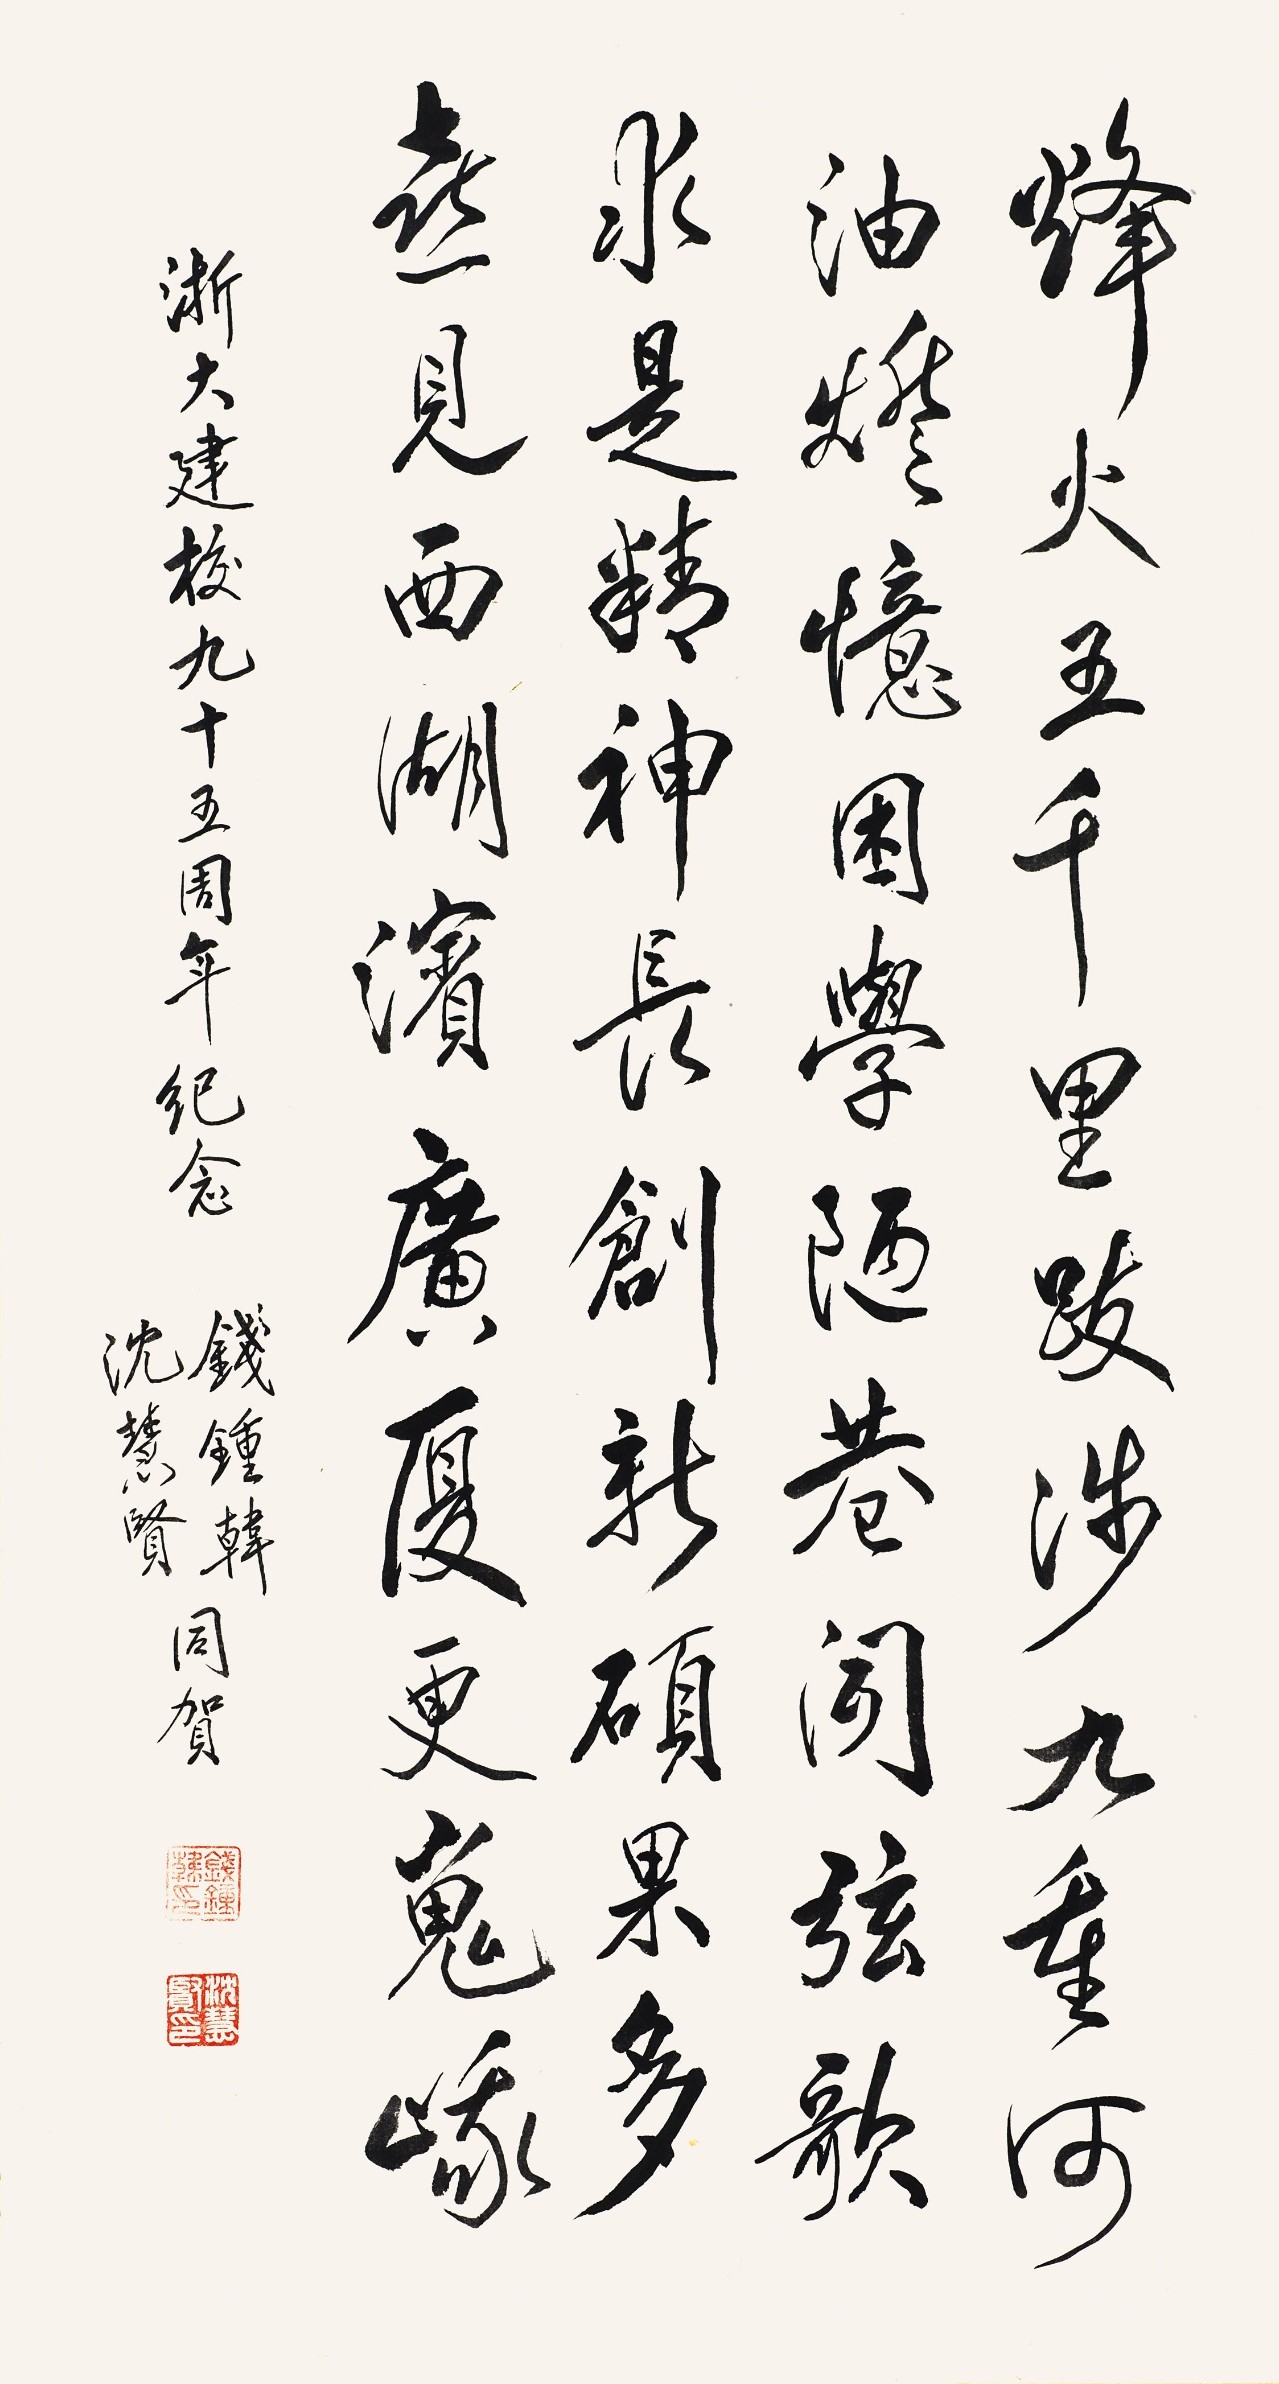 烽火五千里跋涉九重河
油燈憶困學陋巷闻弦歌
求是精神長創新碩果多
喜見西湖濱廣厦更嵬峨
浙大建校九十五周年纪念
錢鍾韓
沈慧賢
同賀
錢鍾韓印
沈慧賢印